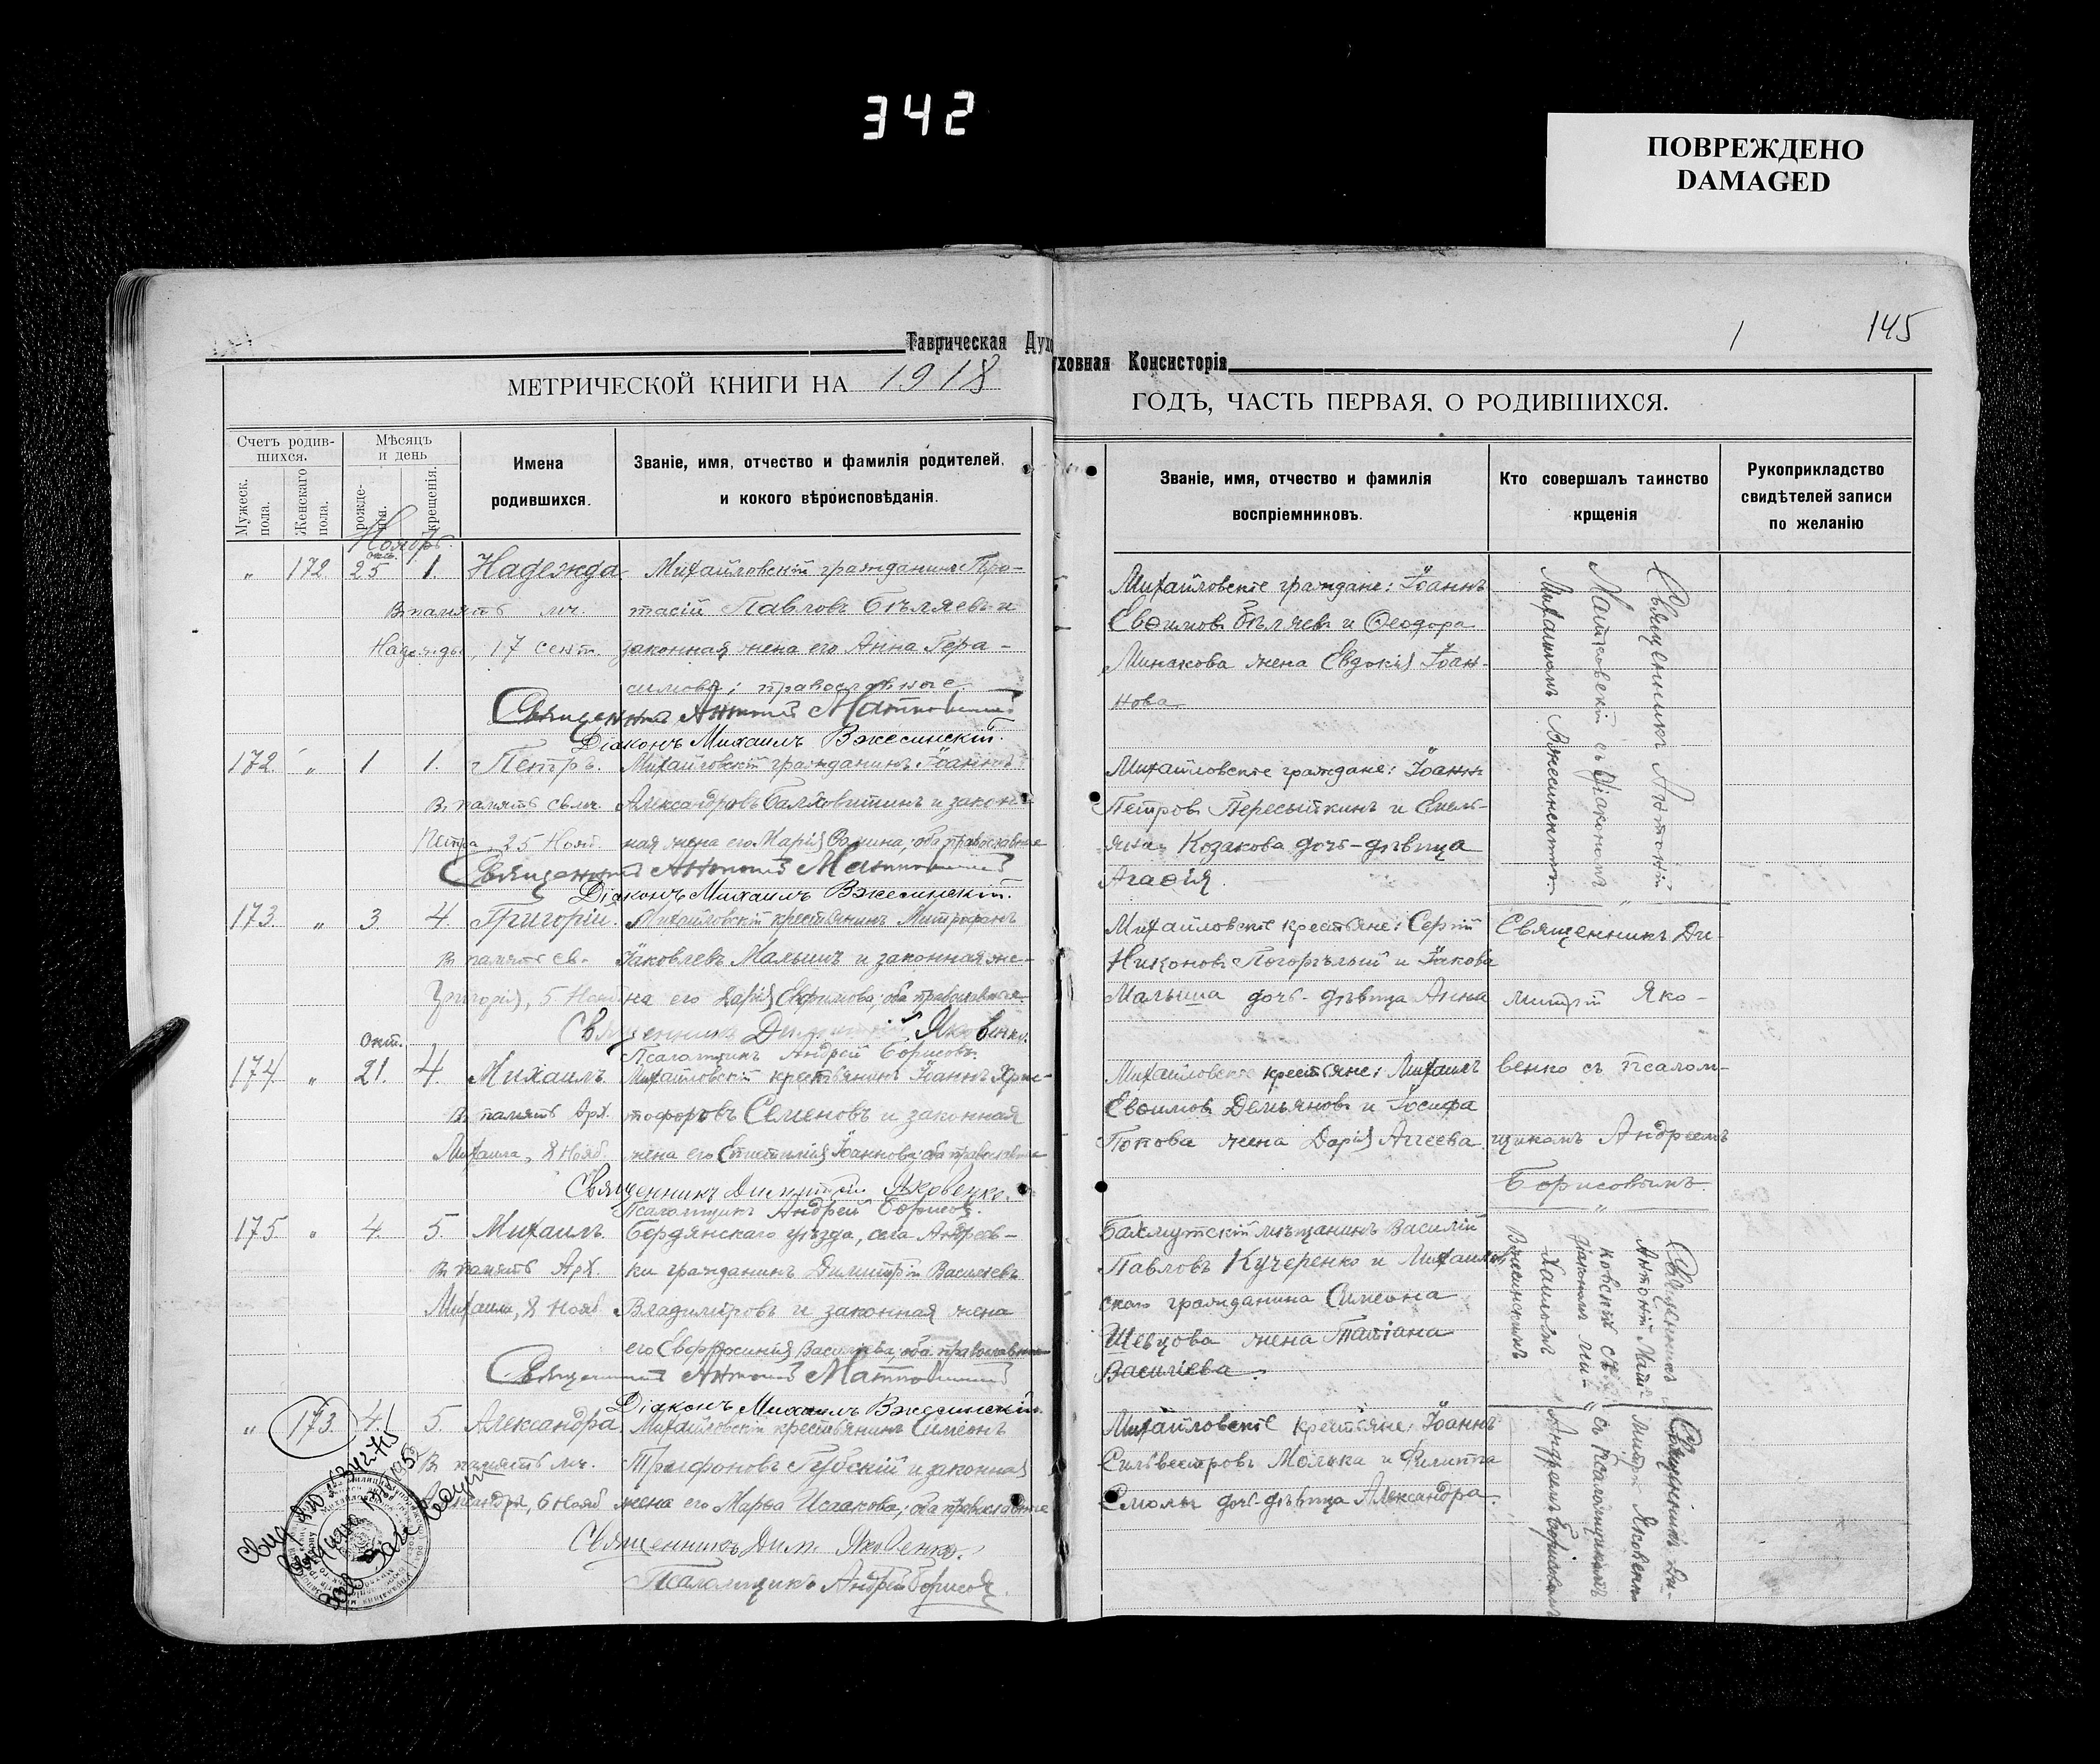 342
ПОВРЕЖДЕНО
DAMAGED
145
Таврическая Духовная Консисторія
МЕТРИЧЕСКОЙ КНИГИ НА 1918
ГОДЪ, ЧАСТЬ ПЕРВАЯ, О РОДИВШИХСЯ.
Счетъ родив-
шихся.
Мужеск.
пола.
Женскаго
пола.
Мѣсяцъ
и день
рожде-
нія.
крещенія.
Имена
родившихся.
Званіе, имя, отчество и фамилія родителей,
и кокого вѣроисповѣданія.
Званіе, имя, отчество и фамилія
воспріемниковъ.
Кто совершалъ таинство
крщенія
Рукоприкладство
свидѣтелей записи
по желанію
Ноябрь.
окт.
„ 172. 25 1. Надежда. Михайловскій гражданинъ Про-
В память мч. тасій Павловъ Бѣляевъ и
Надежды, 17 сент. законная жена его Анна Гера-
симова; православные
Священникъ Антоній
Діаконъ Михаилъ Вжесинскій.
Михайловскіе граждане: Іоаннъ
Евѳимовъ Бѣляевъ и Ѳеодора
Минакова жена Евдокія Іоан-
нова
Священникъ Антоній
съ Діакономъ
Михаиломъ Вжесинскимъ
172. „ 1 1. Петръ. Михайловскій гражданинъ Іоаннъ
В память свмч. Александровъ и закон-
Петра, 25 Нояб. ная жена его Марія Ѳомина, оба православные
Священникъ Антоній
Діаконъ Михаилъ Вжесинскій.
Михайловскіе граждане: Іоаннъ
Петровъ Пересыпкинъ и Емель-
яна Козакова дочь-дѣвица
Агаѳія.
173. „ 3. 4. Григорій. Михайловскій крестьянинъ Митрофанъ
В память св. Іаковлевъ Малышъ и законная же-
Григорія, 5 Нояб. на его Дарія Евфимова; оба православные.
Священникъ Димитрій Яковенко.
Псаломщикъ Андрей Борисовъ.
Михайловскіе крестьяне: Сергій
Никоновъ Погорѣлый и Іакова
Малыша дочь-дѣвица Анна
Священникъ Ди-
митрій Яко-
венко съ псалом-
щикомъ Андреемъ
Борисовымъ.
окт.
174. „ 21. 4. Михаилъ. Михайловскій крестьянинъ Іоаннъ Хрис-
В память Арх. тофоровъ Семеновъ и законная
Михаила, 8 Нояб. жена его Іоаннова; оба православные
Священникъ Димитрій Яковенко.
Псаломщикъ Андрей Борисовъ.
Михайловскіе крестьяне: Михаилъ
Евѳимовъ Демьяновъ и Іосифа
Попова жена Дарія Аггеева.
175. „ 4. 5. Михаилъ. Бердянскаго уѣзда, села Андреев-
В память Арх. ки гражданинъ Димитрій Васильевъ
Михаила, 8 Нояб. Владиміровъ и законная жена
его Евфросинія Васильева, оба православные
Священникъ Антоній
Діаконъ Михаилъ Вжесинскій.
Бахмутскій мѣщанинъ Василій
Павловъ Кучеренко и Михайлов-
скаго гражданина Симеона
Шевцова жена Татіана
Василіева.
Священникъ
Антоній
діакономъ Ми-
хаиломъ
Вжесинскимъ
„ 173. 4. 5. Александра. Михайловскій крестьянинъ Симеонъ
В память мч. Трифоновъ Губскій и законная
Александры, 6 Нояб. жена его Марѳа Исаакова; оба православные
Священникъ Дим. Яковенко.
Псаломщикъ Андрей Борисовъ.
Михайловскіе крестьяне: Іоаннъ
Сильвестровъ Моляка и Филиппа
Смолы дочь-дѣвица Александра.
Священникъ Ди-
митрій Яковенко
съ псаломщикомъ
Андреемъ Борисовымъ